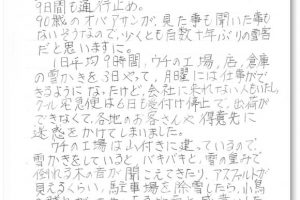 9日間も通行止め。
90歳のオバアサンが、見た事も聞いた事も
ないそうなので、少くとも百数十年ぶりの雪害
だと思いますに。
1日平均9時間、ウチの工場、店、倉庫
の雪かきを3日やって、月曜には仕事ができ
るようにな。だけど、会社に来れない人もいたし、
クール宅急便は6日も受付け停止で、出荷が
できなくて、各地のお客さんや得意先に
迷惑をかけてしまいました。
ウチの工場は山付きに建っているので、
雪かきをしていると、バキバキと、雪の重みで
倒れる木の音が聞こえてきたり、アスファルトが
見えるくらい、駐車場を除雪したら、小鳥